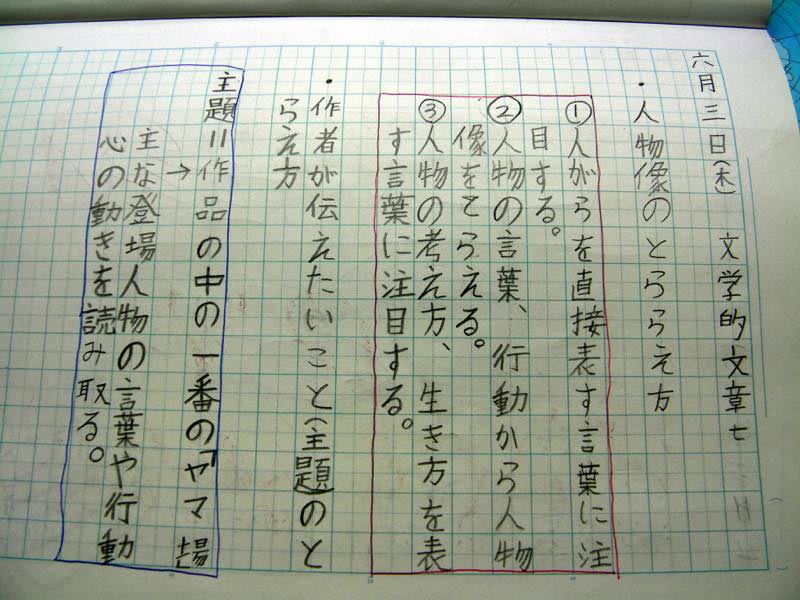 六月三日(木) 文学的文章七
・人物像のとららえ方
①人がらを直接表す言葉に注
目する。
②人物の言葉、行動から人物
像をとらえる。
③人物の考え方、生き方を表
す言葉に注目する。
・作者が伝えたいこと(主題)のと
らえ方
主題=作品の中の一番の「ヤマ場」
→主な登場人物の言葉や行動
心の動きを読み取る。